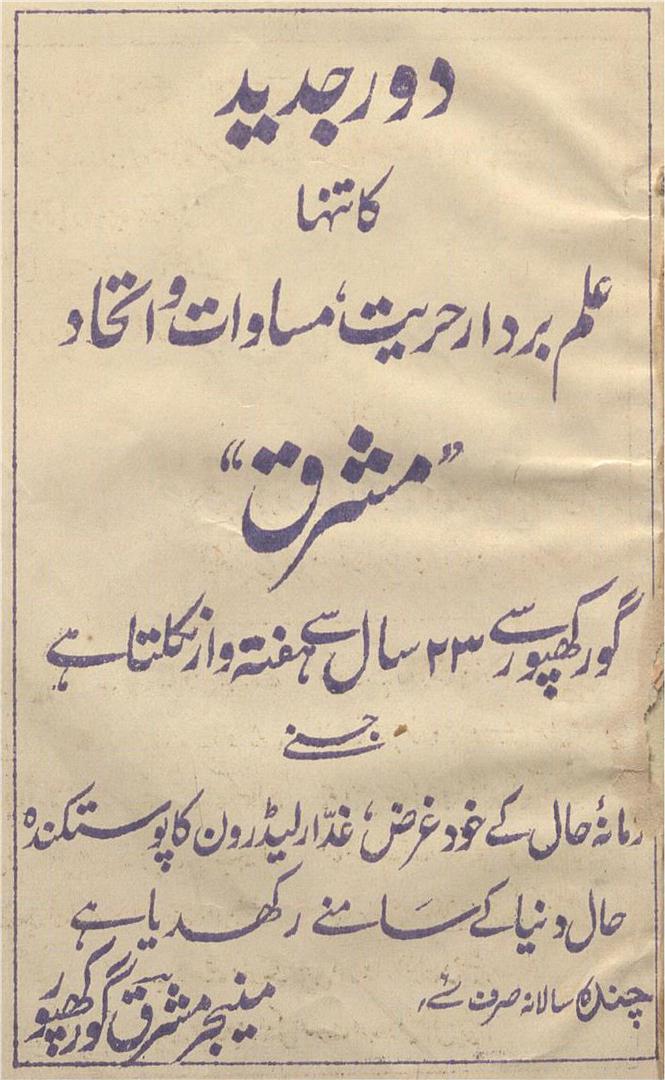 دور جدید
کا تنہا
علم بردار حریت، مساوات و اتحاد
"مشرق"
گورکھپور سے ۲۳ سال سے ہفتہ وار نکلتا ہے
جسنے
زمانۂ حال کے خود غرض، غدّار لیڈرون کا پوست کندہ
حال دنیا کے سامنے رکھدیا ہے
چندہ سالانہ صرف
منیجر مشرق گورکھپور